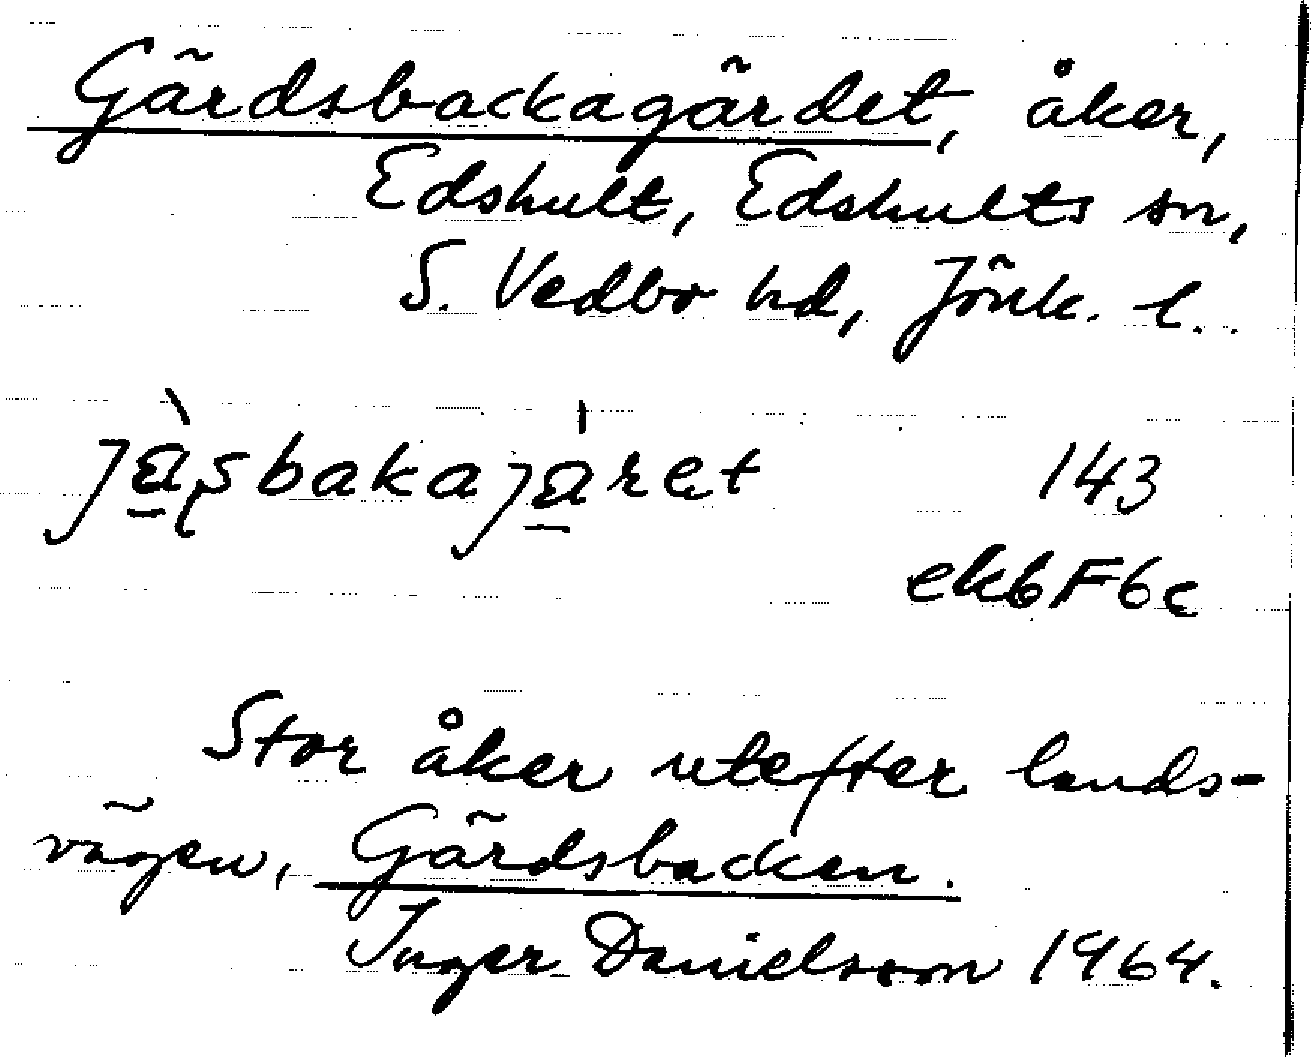 Gärdsbackagärdet, åker,
Edshult, Edshults sn,
S. Vedbo hd, Jönk. l.
143
ek6F6c
Stor åker utefter lands-
vägen, Gärdsbacken.
Inger Danielsson 1964.